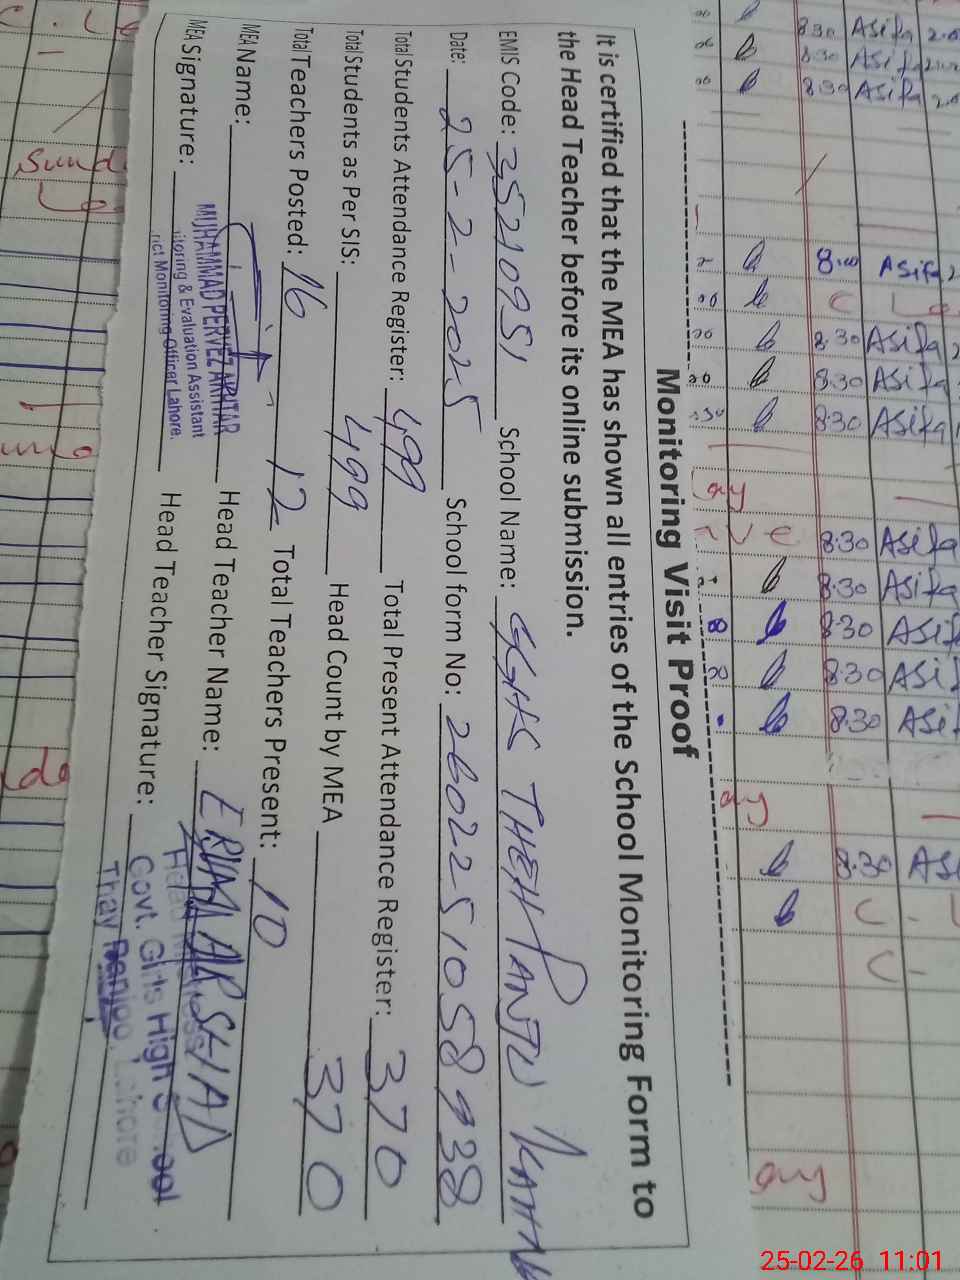 Monitoring Visit Proof
It is certified that the MEA has shown all entries of the School Monitoring Form to
the Head Teacher before its online submission.
EMIS Code: 35210951 School Name: GGHS THEH PANJU KAHNA
Date: 25-2-2025 School form No: 2602251058938
Total Students Attendance Register: 499 Total Present Attendance Register: 370
Total Students as Per SIS: 499 Head Count by MEA 370
Total Teachers Posted: 16 12 Total Teachers Present: 10
MEA Name: MUHAMMAD PERVEZ AKHTAR Head Teacher Name: ERUM ARSHAD
itoring & Evaluation Assistant
rict Monitoring Officer Lahore.
MEA Signature: Head Teacher Signature:
Govt. Girls High School
Thay Lahore
8:30 Asifa
8:30 Asifa
8:30 Asifa
8:00 Asifa
8:30 Asifa
8:30 Asifa
8:30 Asifa
8:30 Asifa
8:30 Asifa
8:30 Asif
8:30 Asi
8:30 Asi
8:30 As
25-02-26 11:01